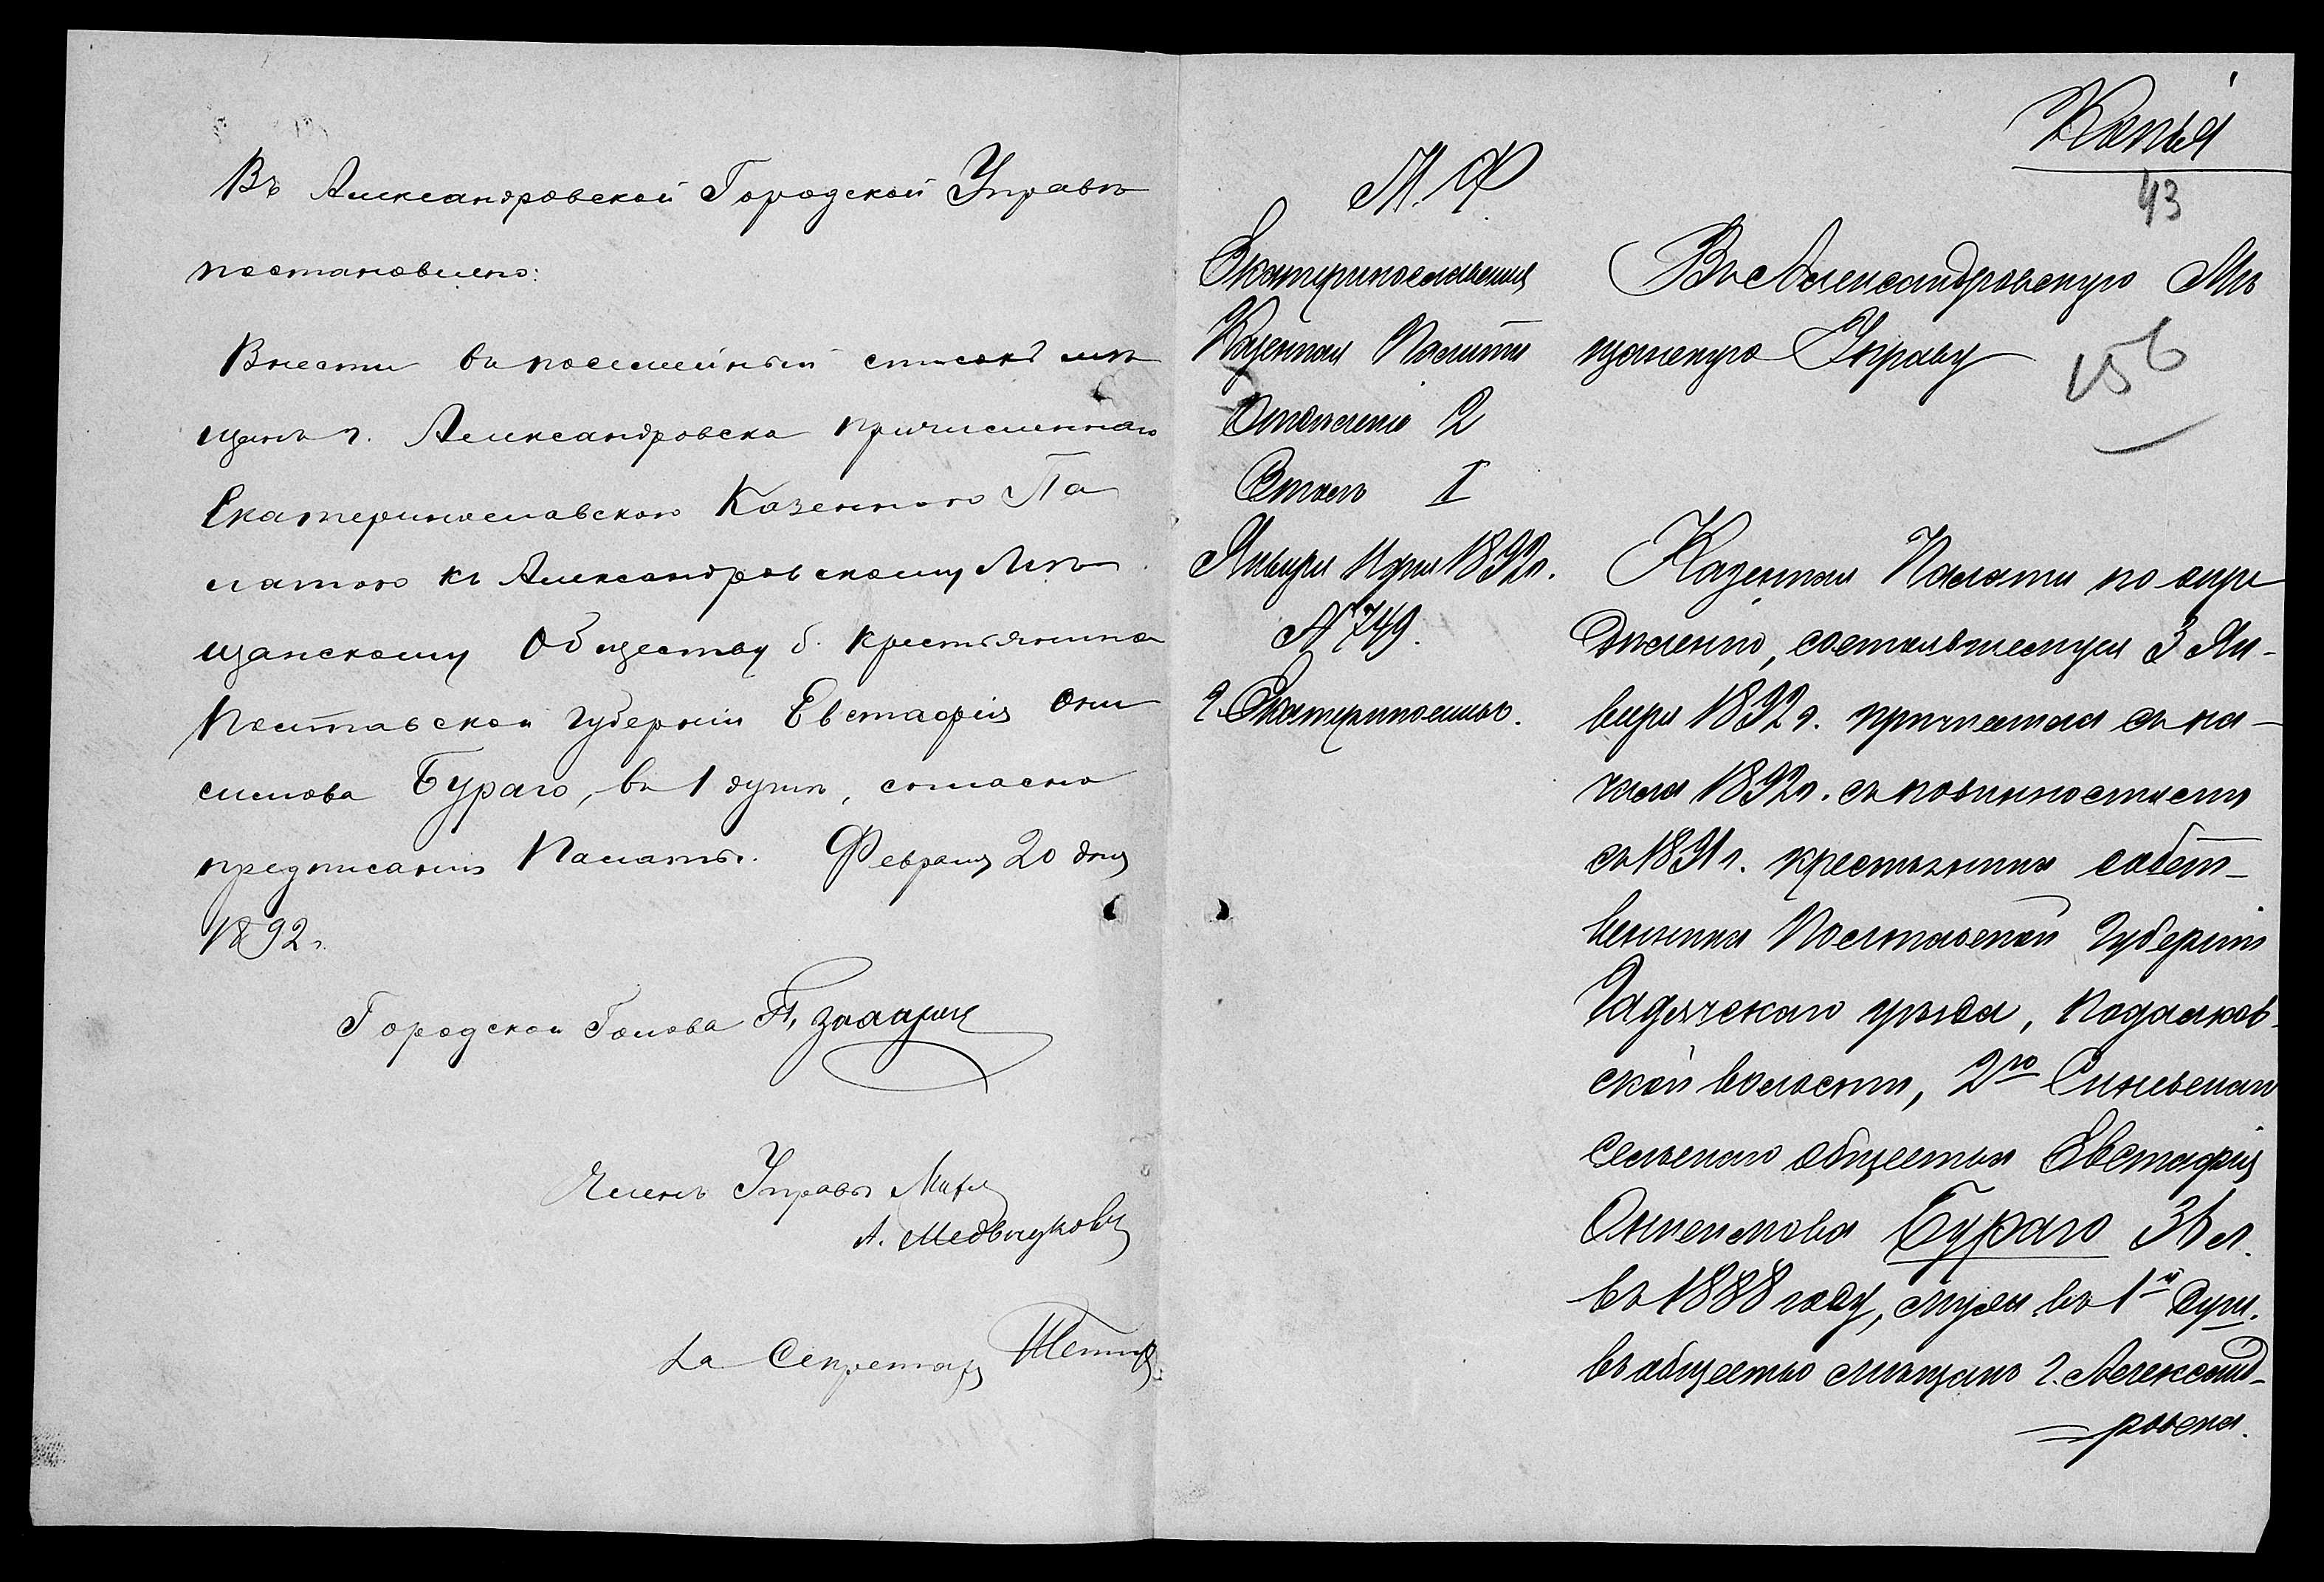 Въ Александровской Городской Управѣ
постановлено:
Внести въ посемейный списокъ мѣ
щанъ г. Александровска причисленнаго
Екатеринославскою Казенною Па
латою къ Александровскому Мѣ
щанскому Обществу б. крестьянина
Полтавской губерніи Евстафія Они
симова Бураго, въ 1 душѣ, согласно
предписанія Палаты. Февраля 20 дня
1892 г.
Городской Голова
Членъ Управы
А. Медвѣдковъ
За Секретаря
Копія
43
М. Ф.
Екатеринославская
Казенная Палата
Отдѣленіе 2
Столъ I
Января дня 1892 г.
№ 749.
г. Екатеринославъ.
Въ Александровскую Мѣ
щанскую Управу
156
Казенная Палата по опре
дѣленію, состоявшемуся 3 Ян-
варя 1892 г. причислила съ на-
чала 1892 г. съ повинностями
съ 1891 г. крестьянина собст-
венника Полтавской Губерніи
Гадячскаго уѣзда,
ской волости, 2го
сельскаго общества Евстафія
Онисимова Бураго л.
въ 1888 году, муж. въ 1й душ.
въ общество мѣщанъ г. Александ-
ровска.